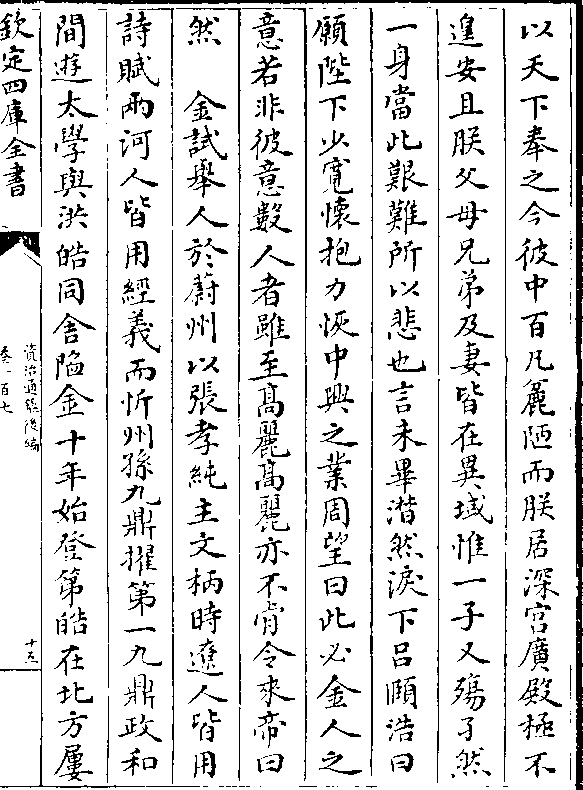 以天下奉之今彼中百凡麄陋而朕居深宫廣殿極不
遑安且朕父母兄弟及妻皆在異域惟一子又殤孑然
一身當此艱難所以悲也言未畢潸然淚下吕頤浩曰
願陛下少寛懷抱力恢中興之業周望曰此必金人之
意若非彼意數人者雖至髙麗髙麗亦不肯令來帝曰
然　金試舉人於蔚州以張孝純主文柄時遼人皆用
詩賦兩河人皆用經義而忻州孫九鼎擢第一九鼎政和
間遊太學與洪皓同舍陷金十年始登第皓在北方屢
欽定四庫全書
資治通鑑後編
卷一百七
十五